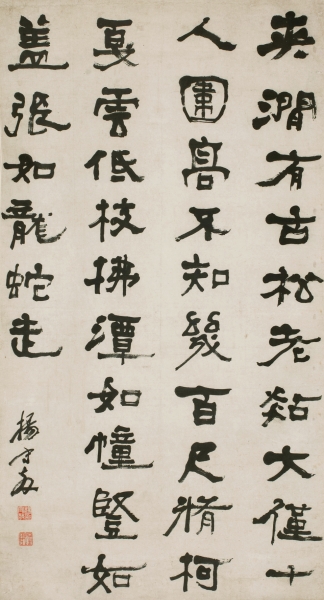 夾澗有古松老煔大僅十
人圍高不知幾百尺脩柯
戛雲低枝拂潭如幢豎如
盖張如龍蛇走
楊守敬